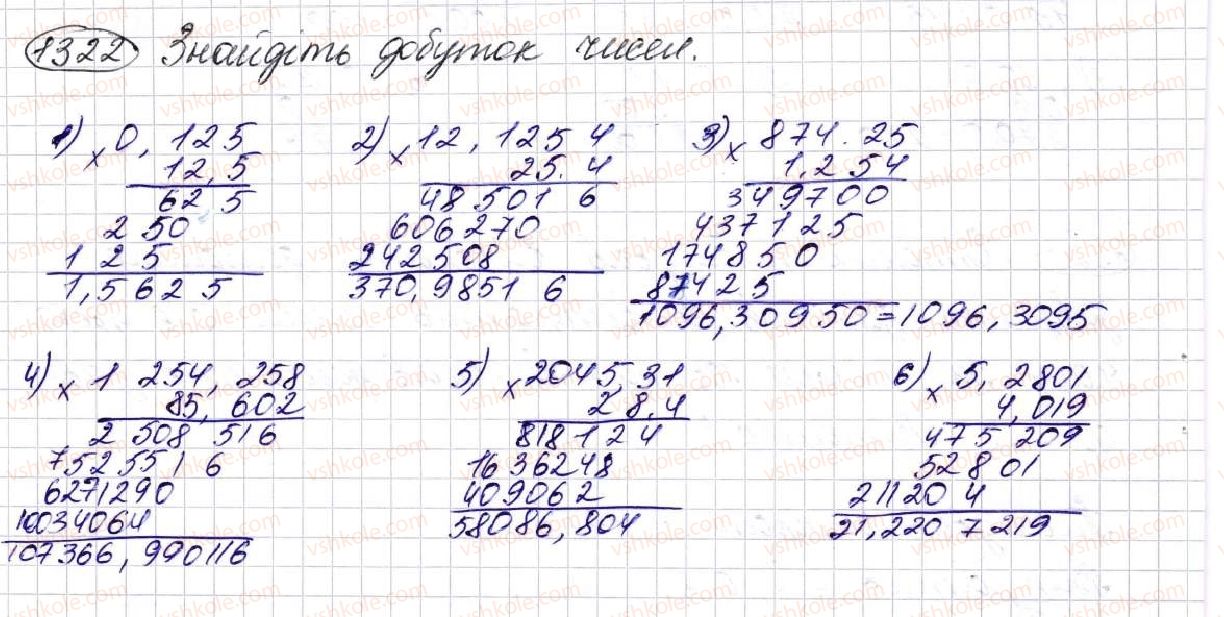 1322 Знайдіть добуток чисел.
1) × 0,125
12,5
625
250
125
1,5625
2) × 12,1254
25.4
485016
606270
242508
370,98516
3) × 874.25
1.254
349700
437125
174850
87425
1096,30950=1096,3095
4) × 1 254,258
85,602
2 508 516
7525516
6271290
10034064
107366,990116
5) × 2045,31
28,4
818124
1636248
409062
58086,804
6) × 5,2801
4,019
475 209
52801
211204
21,2207219
vshkole.com